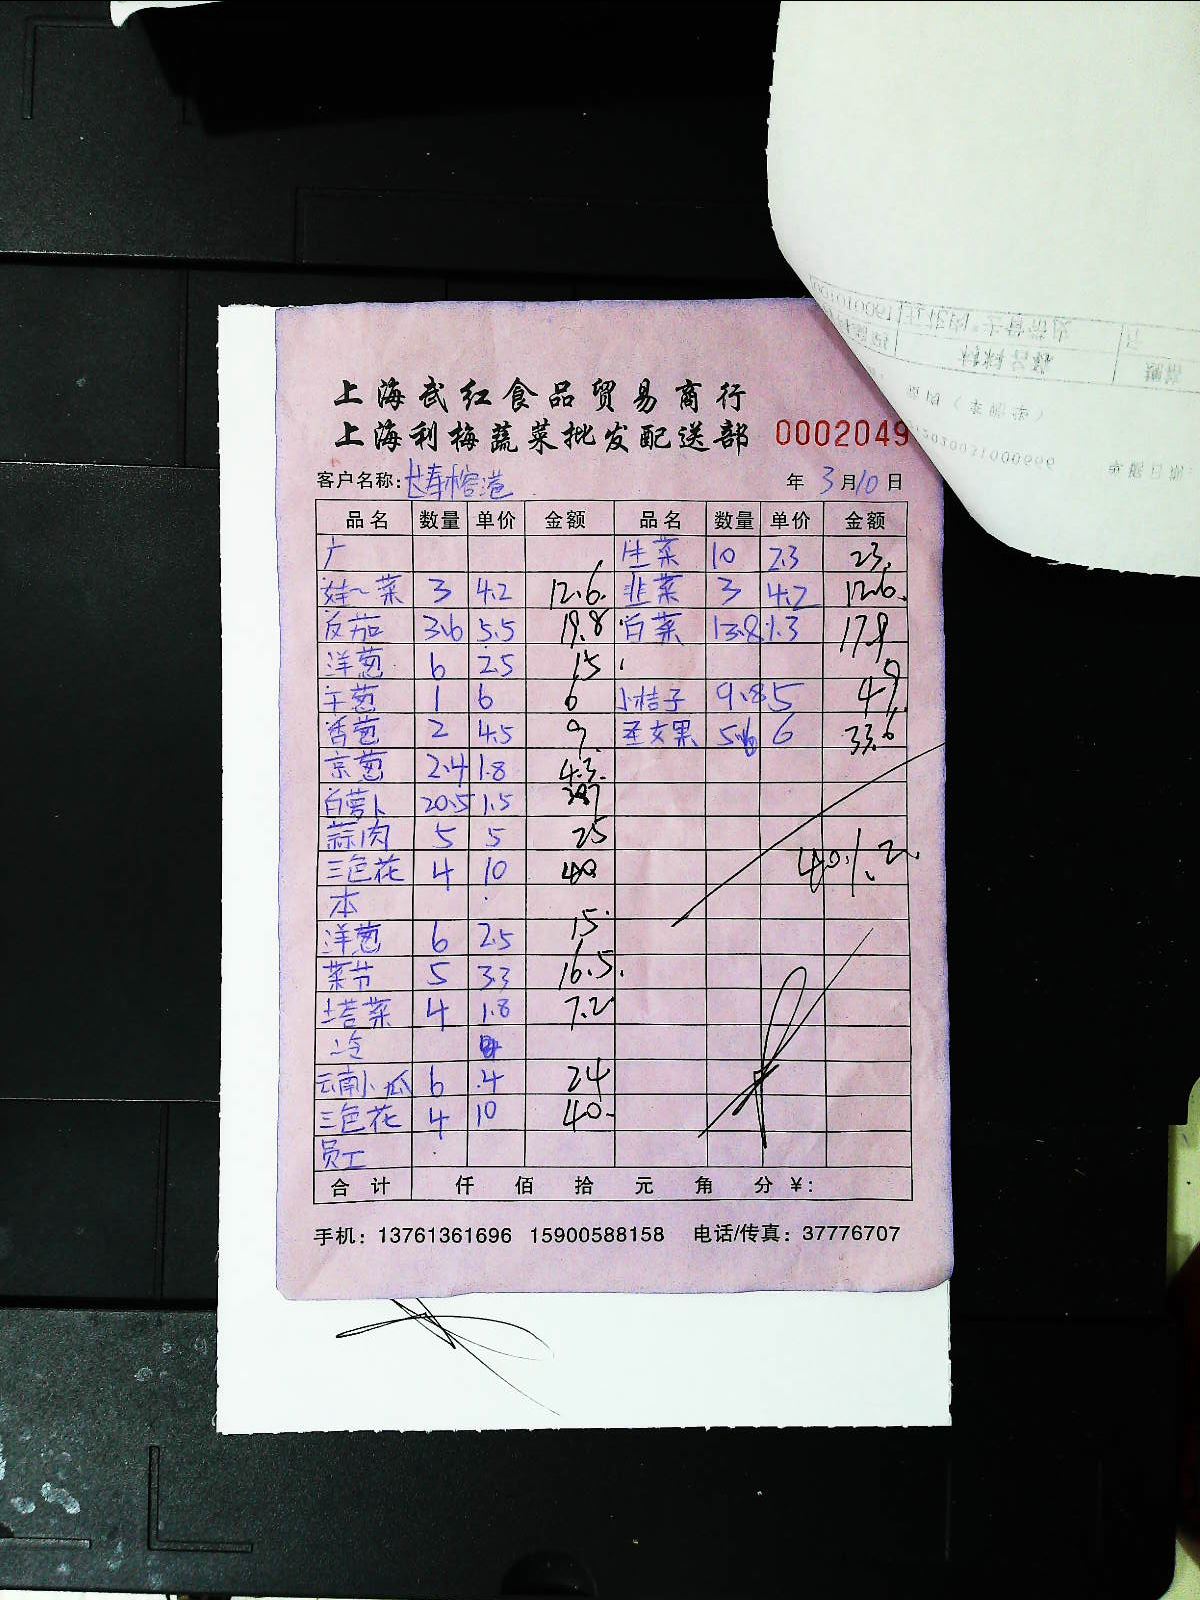 上海武红食品贸易商行
上海利梅蔬菜批发配送部 0002049
客户名称: 年 3月10日
品名 数量 单价 金额 品名 数量 单价 金额
广 生菜 10 2.3 23.
娃~菜 3 4.2 12.6. 韭菜 3 4.2 12.6.
反茄 3.6 5.5 19.8 白菜 13.8 1.3 17.9
洋葱 6 2.5 15
干葱 1 6 6 小桔子 9.8 5 49.
香葱 2 4.5 9. 圣女果 5.6 6 33.6
京葱 2.4 1.8 4.3.
白萝卜 20.5 1.5
蒜肉 5 5 25
三色花 4 10 40 401.2.
本
洋葱 6 2.5 15.
菜节 5 3.3 16.5.
塔菜 4 1.8 7.2
冷
云南小瓜 6 .4 24
三色花 4 10 40.
员工
合计 仟 佰 拾 元 角 分 ¥:
手机：13761361696 15900588158 电话/传真：37776707